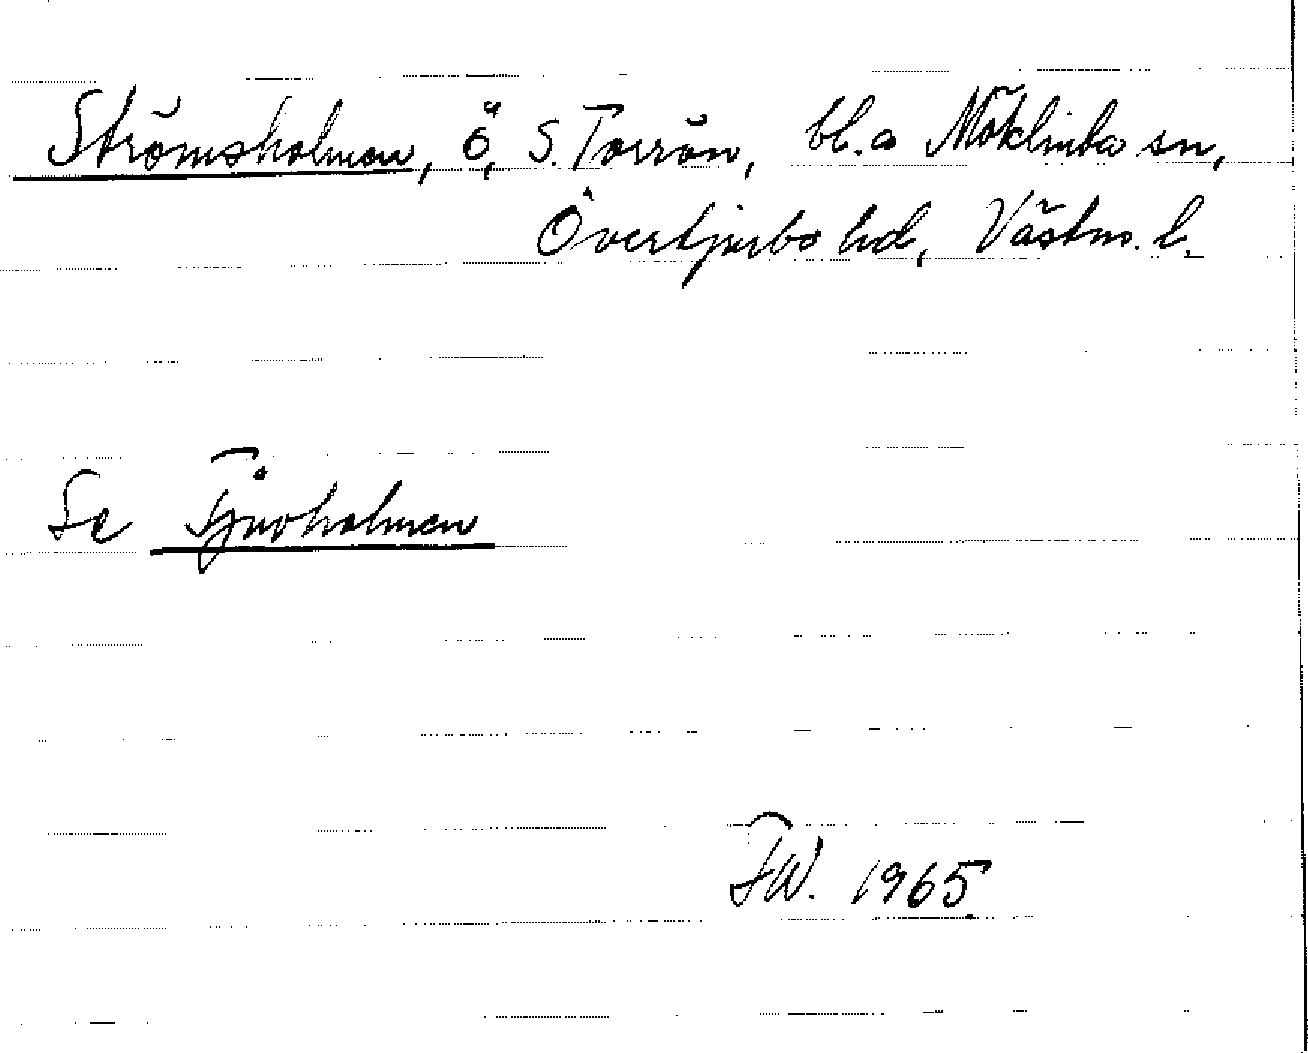 Strömsholmen, ö, S. Torrön, bl.a Möklinta sn,
Övertjurbo hd, Västm. l.
Se Tjurholmen
FW. 1965